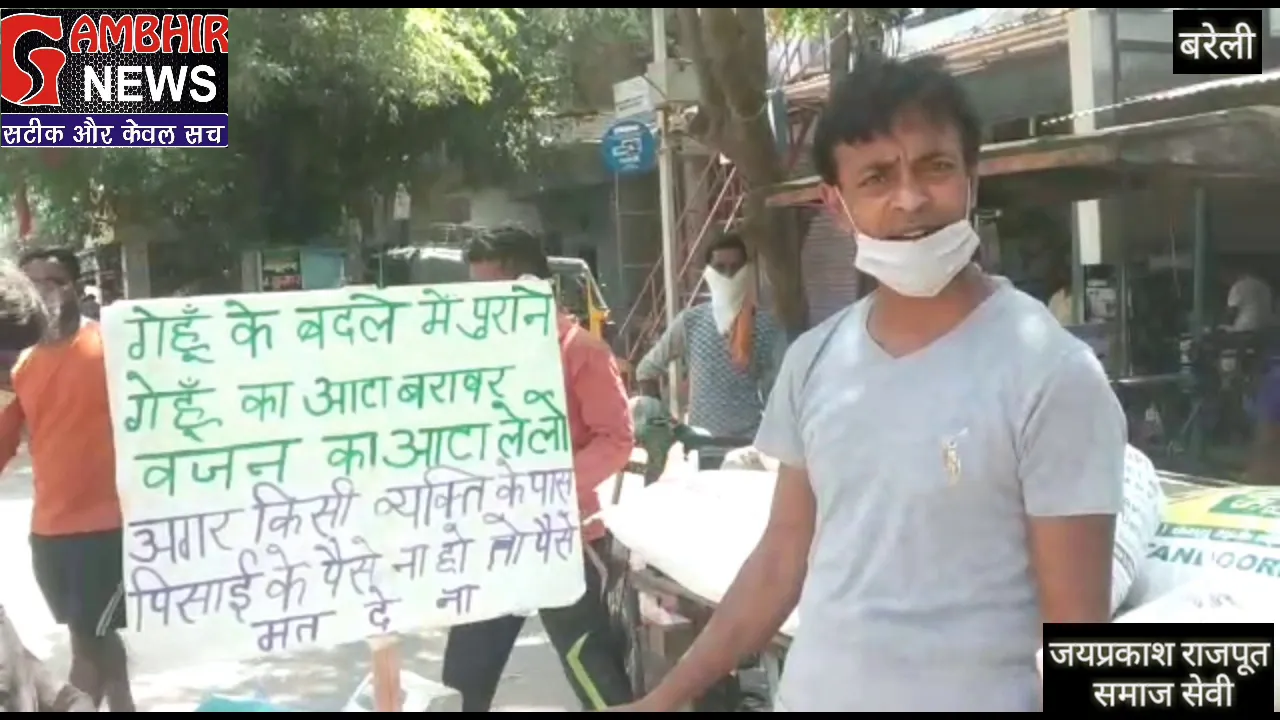 GAMBHIR
NEWS
सटीक और केवल सच
बरेली
गेहूँ के बदले में पुराने
गेहूँ का आटा बराबर
वजन का आटा लेलो
अगर किसी व्यक्ति के पास
पिसाई के पैसे ना हो तो पैसे
मत दे ना
जयप्रकाश राजपूत
समाज सेवी